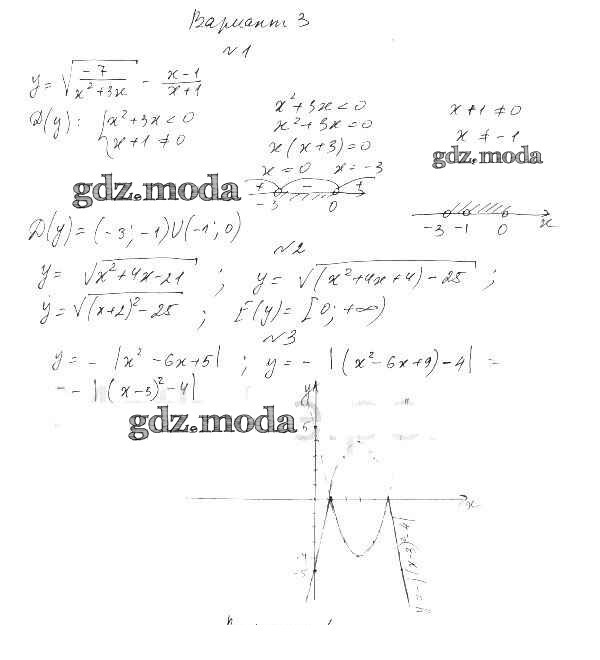 Вариант 3
№1
y = √(-7/(x²+3x)) - (x-1)/(x+1)
D(y): { x²+3x<0
x+1≠0
x²+3x<0
x²+3x=0
x(x+3)=0
x=0 x=-3
+ - +
-3 0
x+1≠0
x≠-1
gdz.moda
gdz.moda
-3 -1 0 x
D(y)=(-3;-1)∪(-1;0)
№2
y = √(x²+4x-21) ; y = √((x²+4x+4)-25) ;
y=√((x+2)²-25) ; E(y)=[0;+∞)
№3
y = - |x²-6x+5| ; y = - |(x²-6x+9)-4| =
= - |(x-3)²-4|
gdz.moda
y
5
x
-4
-5
y=-|(x-3)²-4|